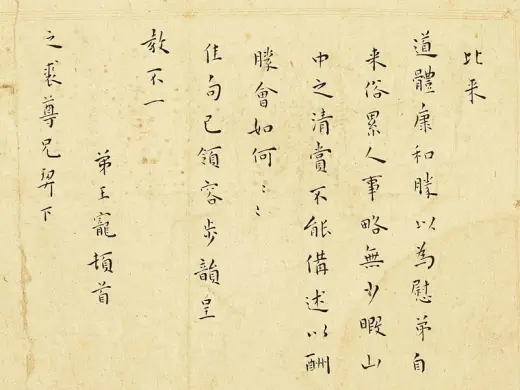 比来
道體康和勝以為慰弟自
来俗累人事略無少暇山
中之清賞不能備述以酬
勝會如何〻
佳句已領容步韻呈
教不一
弟王寵頓首
之裘尊兄契下